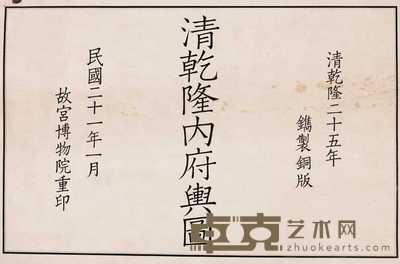 清乾隆二十五年
鐫製銅版
清乾隆內府輿圖
民國二十一年一月
故宮博物院重印
卓克艺术网
zhuokearts.com